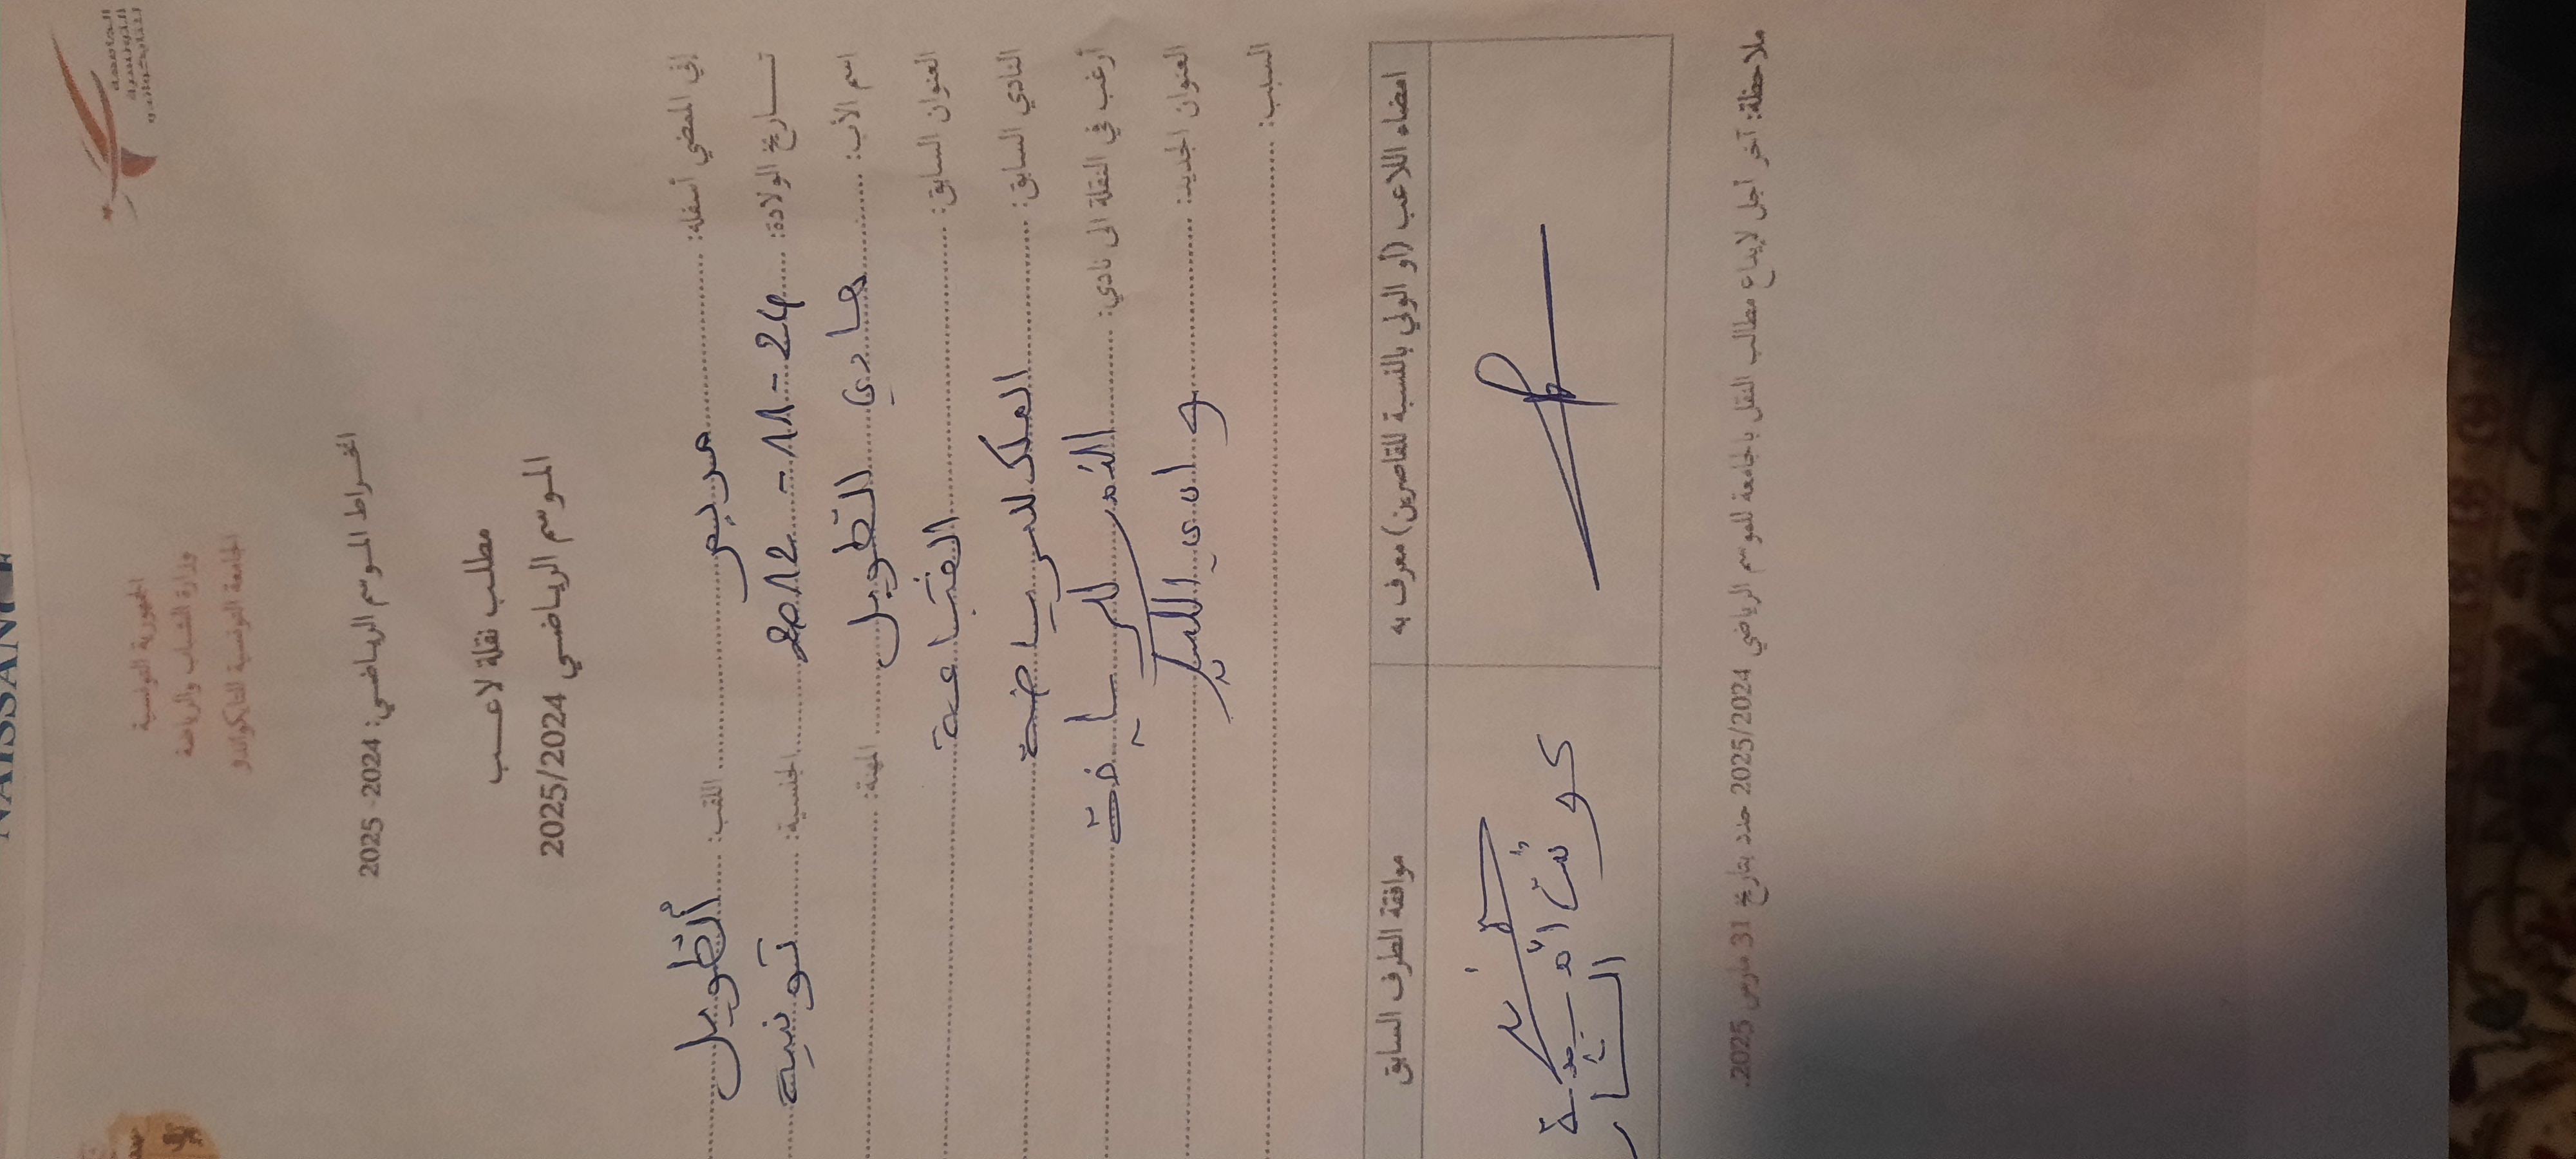 الجامعة
التونسية
للتايكواندو
NAISSANCE
الجمهورية التونسية
وزارة الشباب والرياضة
الجامعة التونسية للتايكواندو
انخراط الموسم الرياضي: 2024- 2025
مطلب نقلة لاعب
الموسم الرياضي 2025/2024
إني الممضي أسفله: مريم اللقب: الطويل
تاريخ الولادة: 24-11-2012 الجنسية: تونسية
اسم الأب: هادي الطويل المهنة:
العنوان السابق:
النادي السابق: للرياضة
أرغب في النقلة الى نادي: للرياضة
العنوان الجديد: وادي الليل
السبب:
امضاء اللاعب (أو الولي بالنسبة للقاصرين) معرف به
موافقة الطرف السابق
ملاحظة: آخر أجل لإيداع مطالب النقل بالجامعة للموسم الرياضي 2025/2024 حدد بتاريخ 31 مارس 2025.